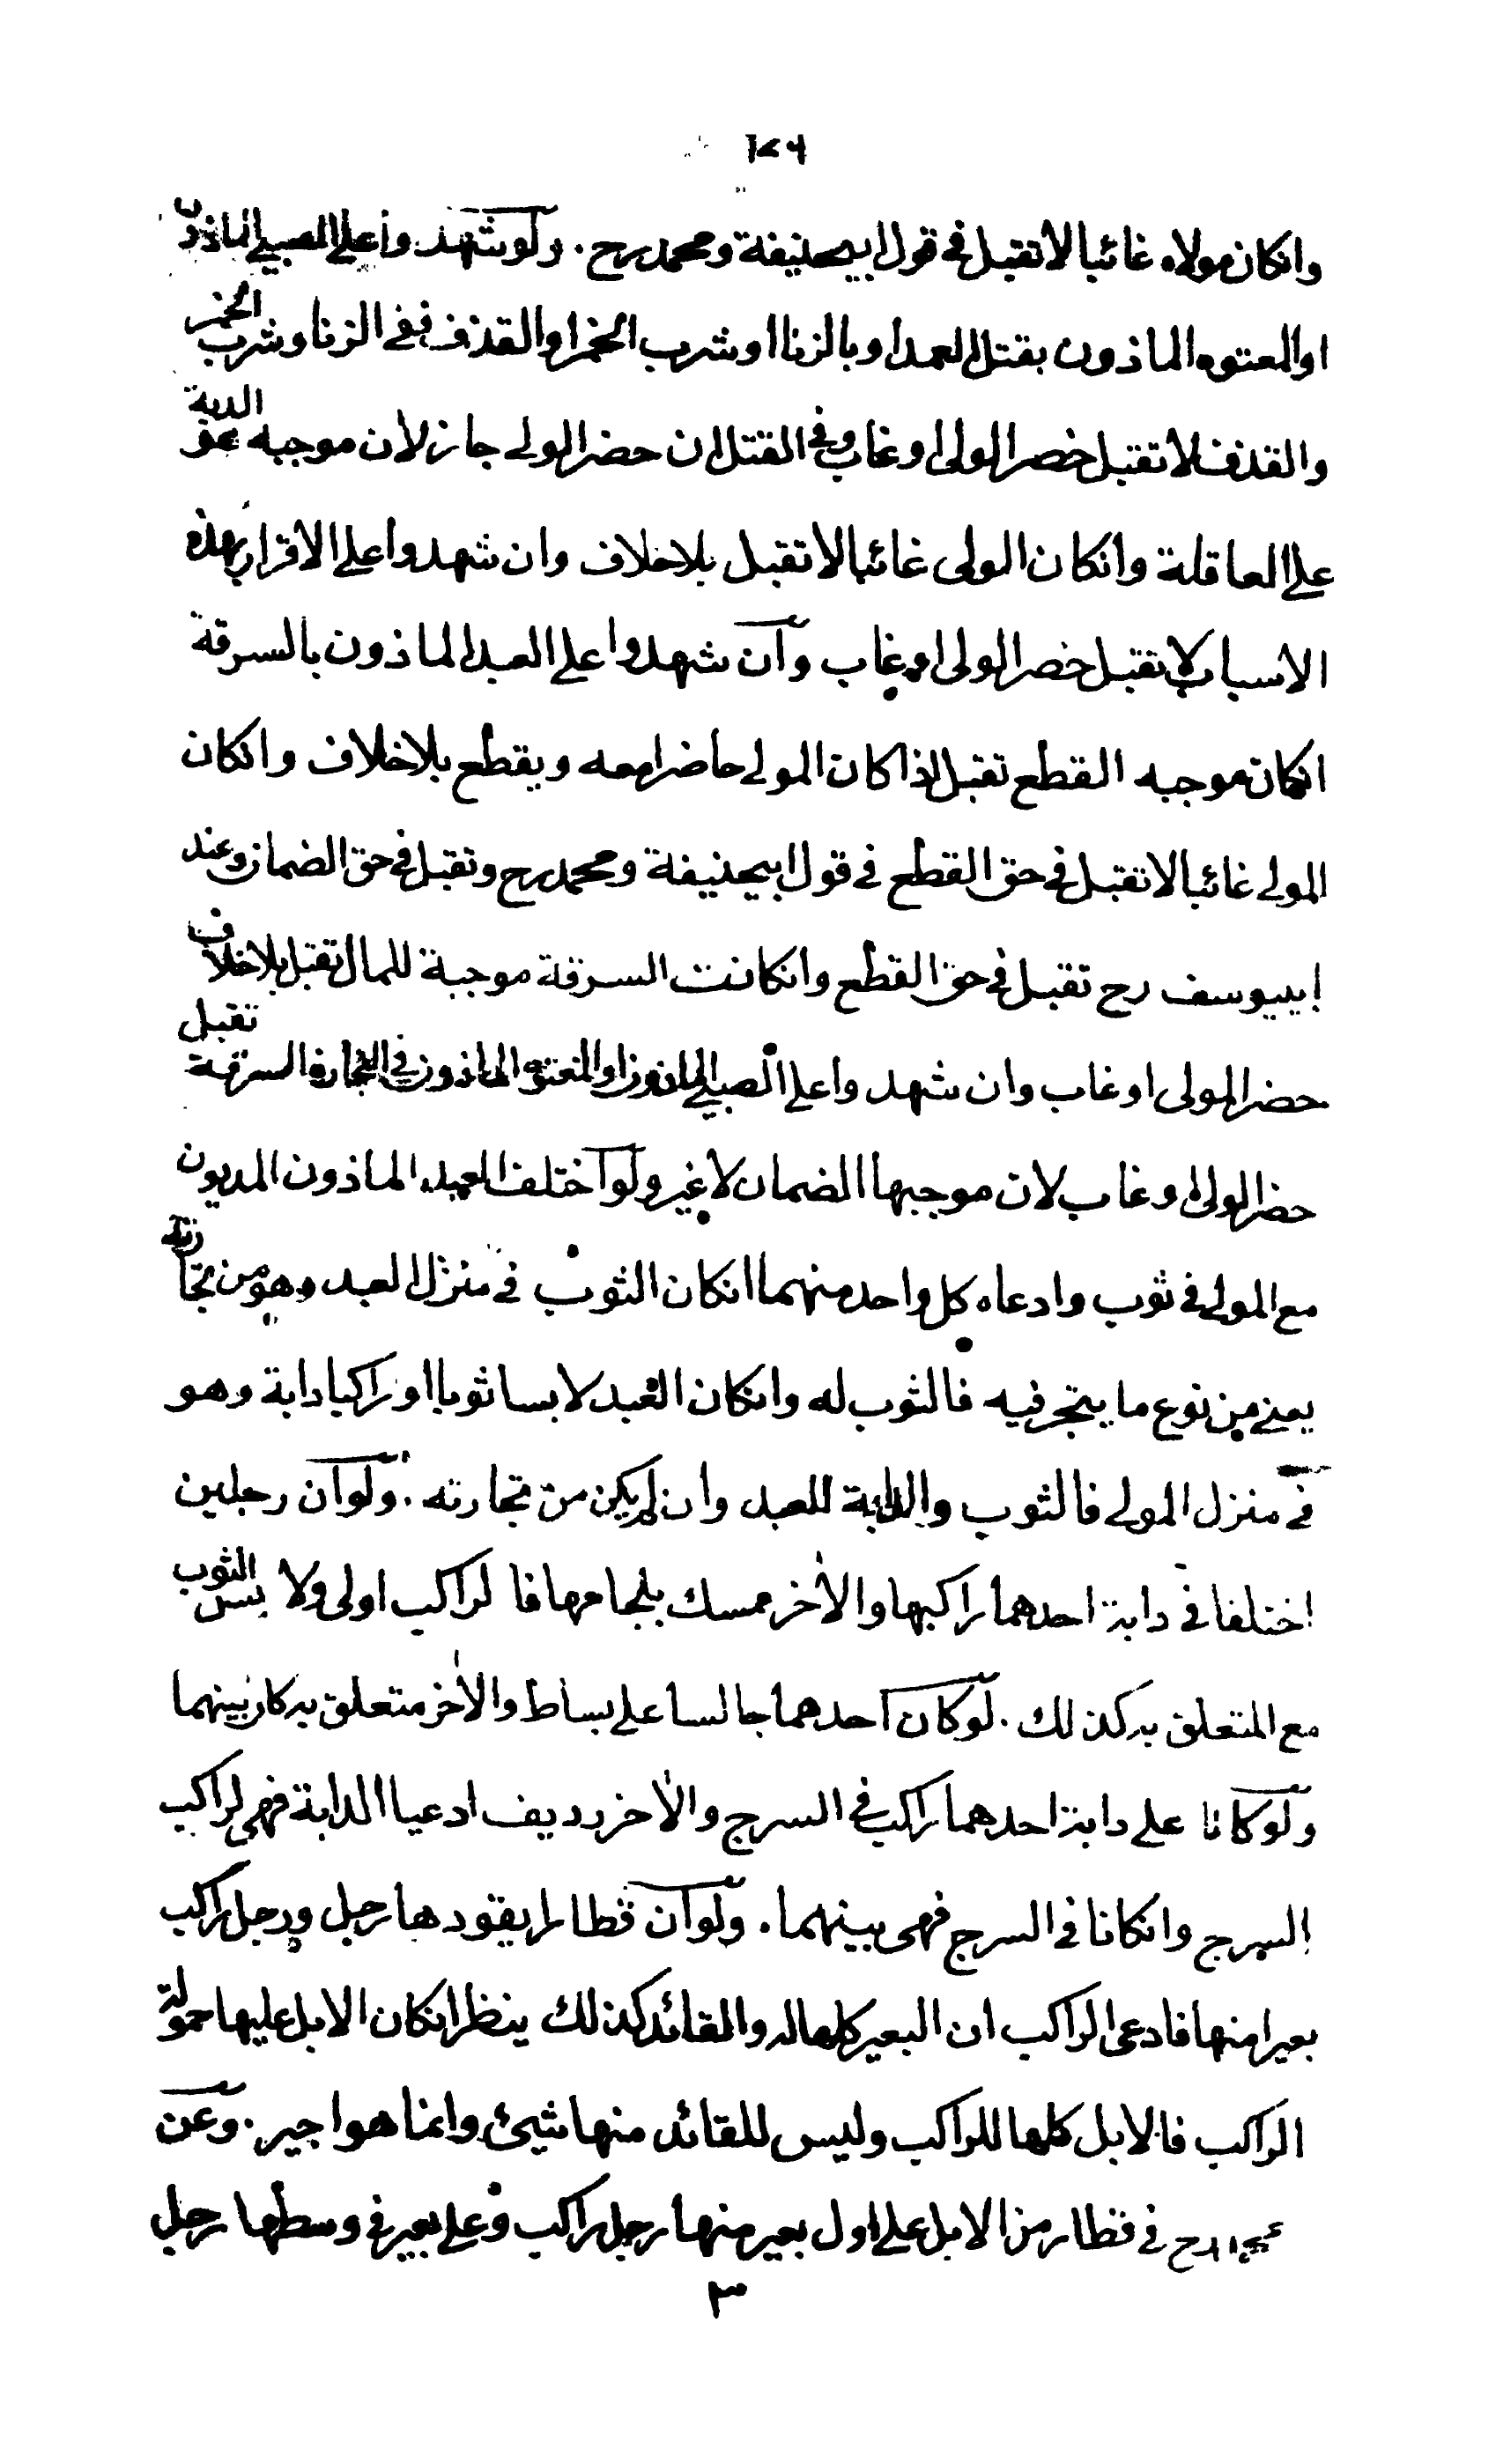 ١٧٩
وانكان مولاه غائبا لا تقبل في قول ابيحنيفة ومحمد رح . ولو شهدوا على الصبي الماذون
او المعتوه الماذون بقتل العمد او بالزنا او شرب الخمر او القذف ففي الزنا وشرب الخمر
والقذف لا تقبل حضر الولى او غاب وفي القتل ان حضر الولى جاز لان موجبه عمد الدية
على العاقلة وانكان الولى غائبا لا تقبل بلا خلاف وان شهدوا على الاقرار بهذه
الاسباب لا تقبل حضر الولى او غاب وان شهدوا على العبد الماذون بالسرقة
انكان موجبه القطع تقبل اذا كان المولى حاضرا معه ويقطع بلا خلاف وانكان
المولى غائبا لا تقبل في حق القطع في قول ابيحنيفة ومحمد رح وتقبل في حق الضمان وعند
ابييوسف رح تقبل في حق القطع وانكانت السرقة موجبة للمال تقبل بلا خلاف
حضر المولى او غاب وان شهدوا على الصبي الماذون او المعتوه الماذون في التجارة السرقة تقبل
حضر الولى او غاب لان موجبها الضمان لا غير ولو اختلف العبد الماذون المديون
مع المولى في ثوب وادعاه كل واحد منهما انكان الثوب في منزل العبد وهو من تجارته
يعني من نوع ما يتجر فيه فالثوب له وانكان العبد لابسا ثوبا او راكبا دابة وهو
في منزل المولى فالثوب والدابة للعبد وان لم يكن من تجارته . ولو ان رجلين
اختلفا في دابة احدهما راكبها والاخر ممسك بلجامها فالراكب اولى ولابس الثوب
مع المتعلق به كذلك . لو كان احدهما جالسا على بساط والاخر متعلق به كان بينهما
ولو كانا على دابة احدهما راكب في السرج والاخر رديف ادعيا الدابة فهي لراكب
السرج وانكانا في السرج فهي بينهما . ولو ان قطارا يقودها رجل ورجل راكب
بعيرا منها فادعى الراكب ان البعير كلها له والقائد كذلك ينظر انكان الابل عليها حمولة
الراكب فالابل كلها للراكب وليس للقائد منها شيئ وانما هو اجير . وعن
محمد رح في قطار من الابل على اول بعير منها رجل راكب وعلى بعير في وسطها رجل
٣